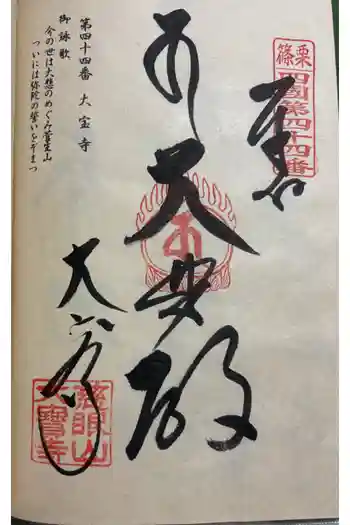 篠栗
四國第四十四番
奉
大悲殿
大宝寺
慈眼山
大寶寺
第四十四番 大宝寺
御詠歌
今の世は大悲のめぐみ菅生山
ついには弥陀の誓いをぞまつ